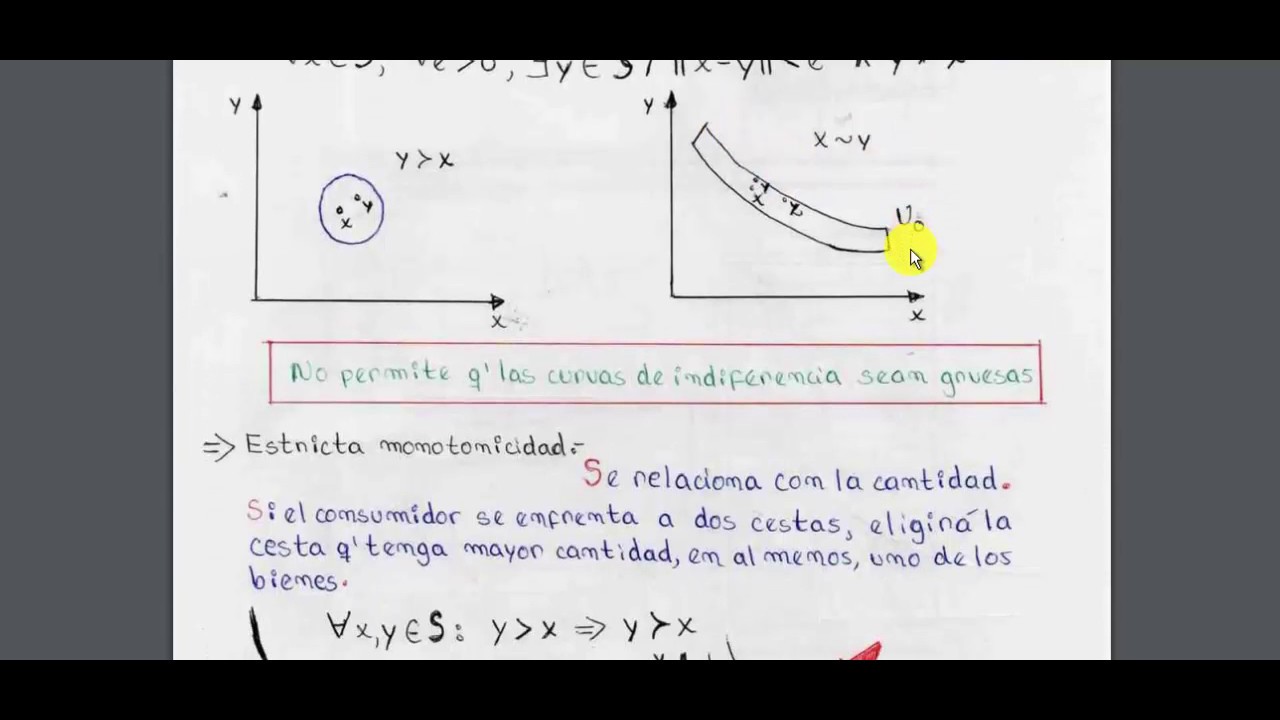 ∀x∈S, ∀e>0, ∃y∈S / ||x-y||<e ∧ y≻x
y
y≻x
y
x
x
y
x~y
y
x
z
U₀
x
No permite q' las curvas de indiferencia sean gruesas
⇒ Estricta monotonicidad.-
Se relaciona con la cantidad.
Si el consumidor se enfrenta a dos cestas, eligirá la
cesta q' tenga mayor cantidad, en al menos, uno de los
bienes.
∀x,y∈S: y>x ⇒ y≻x